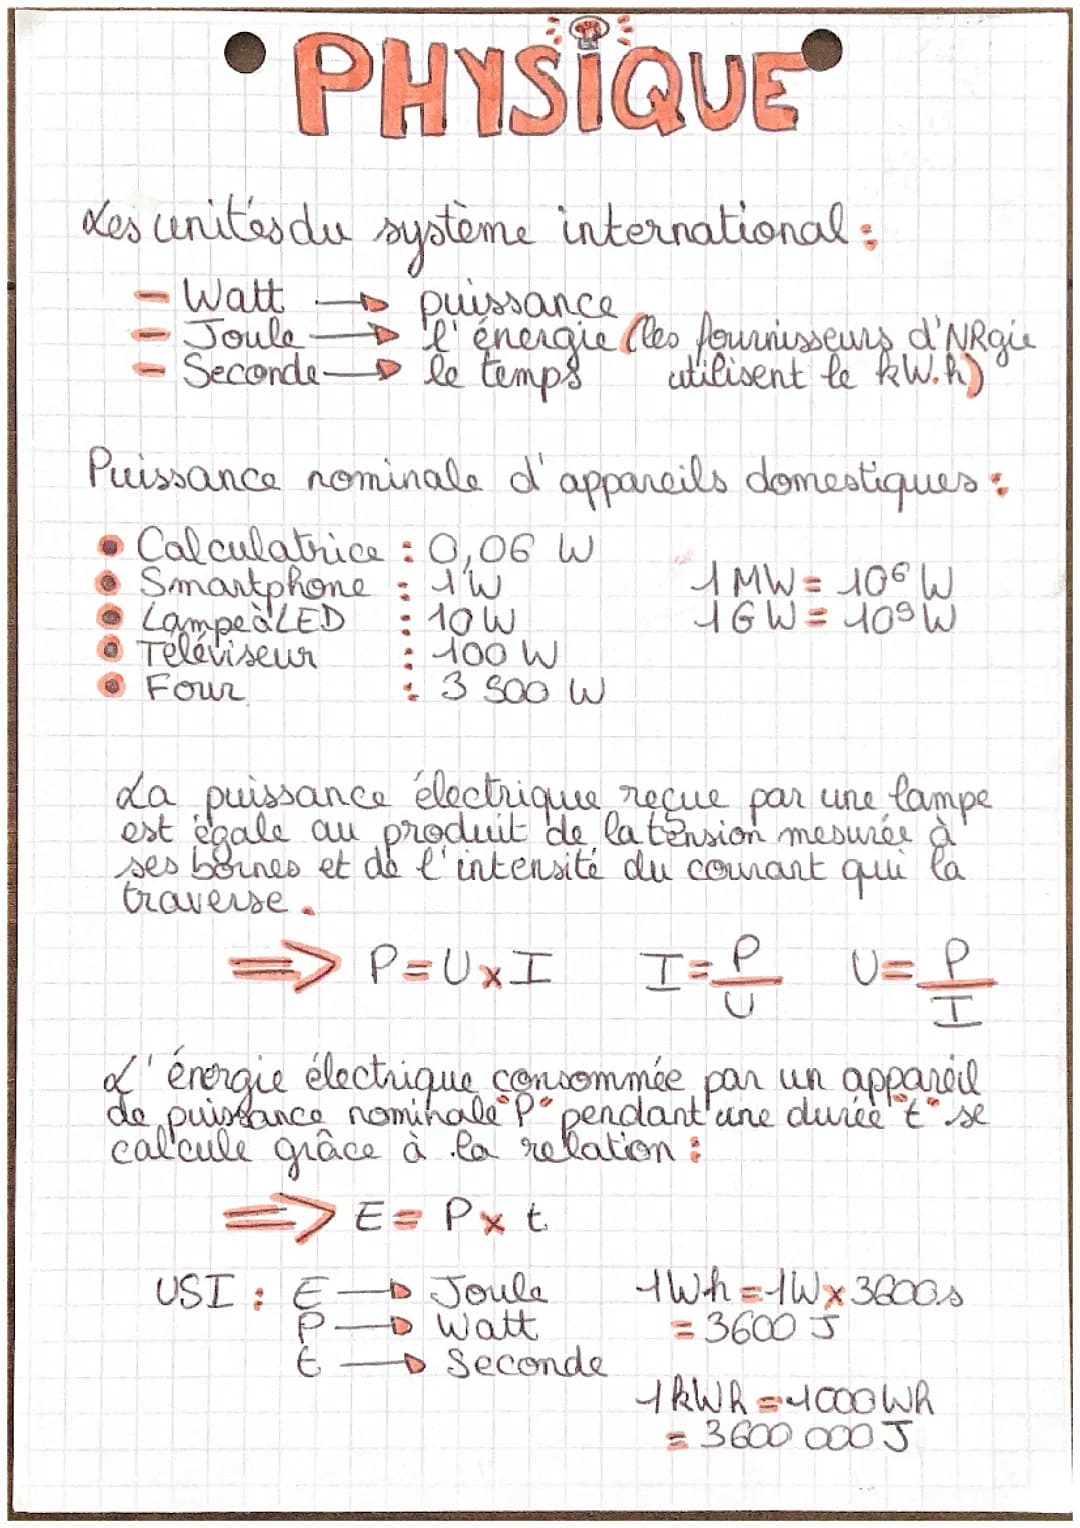 PHYSIQUE
Les unités du système international :
- Watt → puissance
- Joule → l'énergie (les fournisseurs d'NRgie
utilisent le kW.h)
- Seconde → le temps
Puissance nominale d'appareils domestiques :
• Calculatrice : 0,06 W
• Smartphone : 1W
1 MW = 10⁶ W
• Lampe à LED : 10 W
1 GW = 10⁹ W
• Téléviseur : 100 W
• Four : 3 500 W
La puissance électrique reçue par une lampe
est égale au produit de la tension mesurée à
ses bornes et de l'intensité du courant qui la
traverse.
=> P = U x I I = P/U U = P/I
L'énergie électrique consommée par un appareil
de puissance nominale "P" pendant une durée "t" se
calcule grâce à la relation :
=> E = P x t
USI : E → Joule
P → Watt
t → Seconde
1Wh = 1W x 3600s
= 3600 J
1 kWh = 1000 Wh
= 3600 000 J